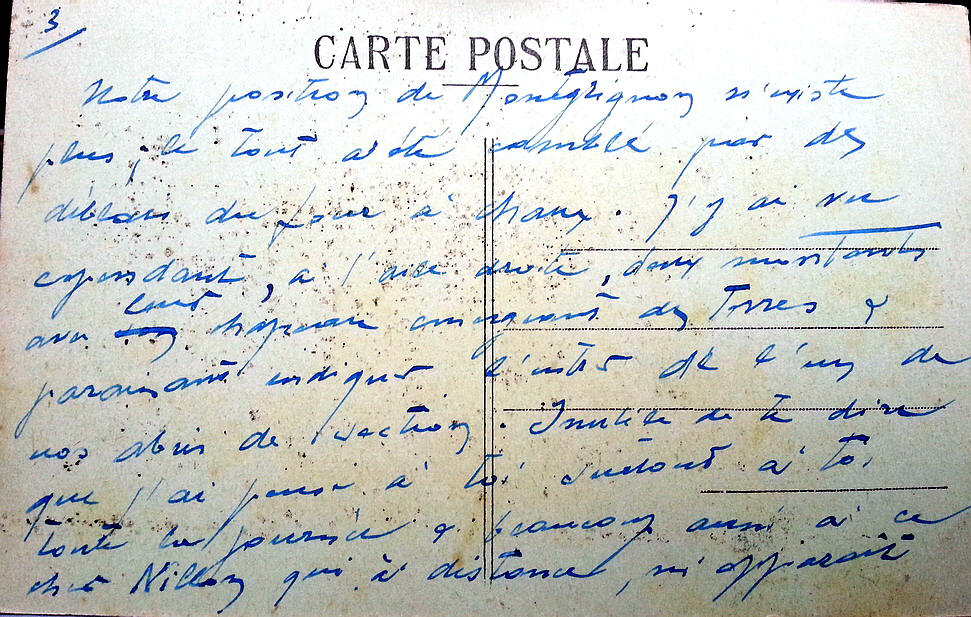 3
CARTE POSTALE
Notre position de Montgrignon n'existe
plus ; le tout a été comblé par des
déblais du four à chaux. J'y ai vu
cependant, à l'aile droite, deux montants
avec leur chapeau émergeant des terres &
paraissant indiquer l'entrée de l'un de
nos abris de section. Inutile de te dire
que j'ai pensé à toi surtout à toi
toute la journée & beaucoup aussi à ce
cher qui à distance, m'apparait